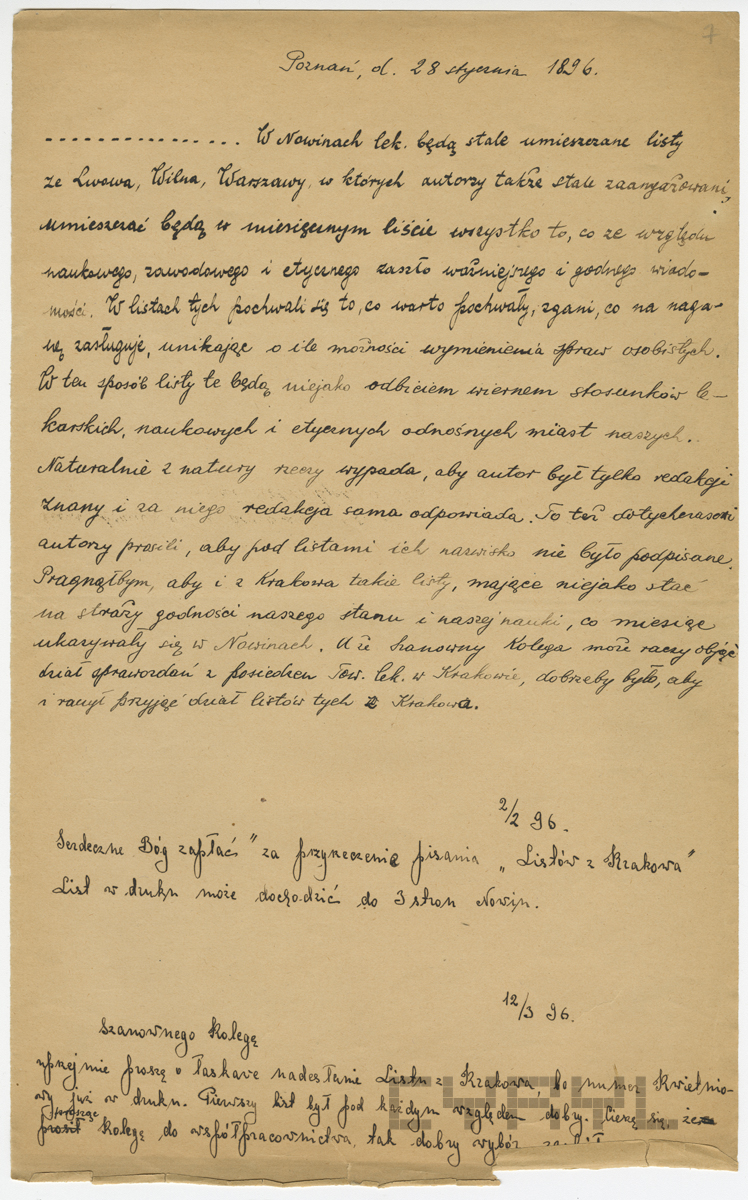 7
Poznań, d. 28 stycznia 1896.
. . . . . . . . . . . . . . . . W Nowinach lek. będą stale umieszczane listy
ze Lwowa, Wilna, Warszawy, w których autorzy także stale zaangażowani,
umieszczać będą w miesięcznym liście wszystko to, co ze względu
naukowego, zawodowego i etycznego zaszło ważniejszego i godnego wiado-
mości. W listach tych pochwali się to, co warto pochwały, zgani, co na naga-
nę zasługuje, unikając o ile możności wymienienia spraw osobistych.
W ten sposób listy te będą niejako odbiciem wiernem stosunków le-
karskich, naukowych i etycznych odnośnych miast naszych.
Naturalnie z natury rzeczy wypada, aby autor był tylko redakcji
znany i za niego redakcja sama odpowiada. To też dotychczasowi
autorzy prosili, aby pod listami ich nazwisko nie było podpisane.
Pragnąłbym, aby i z Krakowa takie listy, mające niejako stać
na straży godności naszego stanu i naszej nauki, co miesiąc
ukazywały się w Nowinach. A że Szanowny Kolega może raczy objąć
dział sprawozdań z posiedzen Tow. lek. w Krakowie, dobrzeby było, aby
i raczył przyjąć dział listów tych z Krakowa.
2/2 96.
Serdeczne Bóg zapłać" za przyrzeczenie pisania „Listów z Krakowa"
List w druku może dochodzić do 3 stron Nowin.
12/3 96.
Szanownego Kolegę
uprzejmie proszę o łaskawe nadesłanie Listu z Krakowa, bo numer Kwietnio-
wy już w druku. Pierwszy list był pod każdym względem dobry. Cieszę się, że
prosząc
prosił kolegę do współpracownictwa, tak dobry wybór